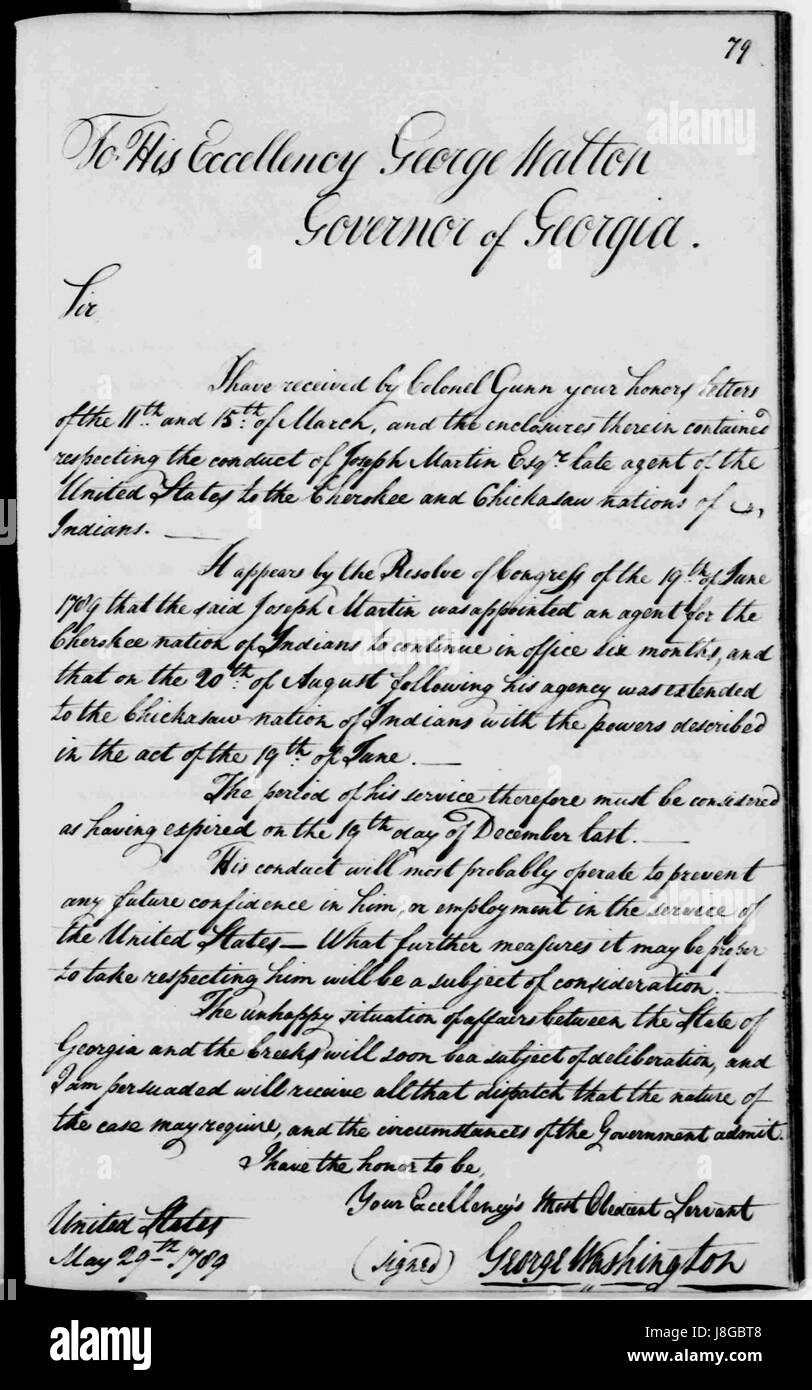 79
To His Excellency George Walton
Governor of Georgia.
Sir
I have received by Colonel Gunn your honors letters
of the 11th and 15th of March, and the enclosures therein contained
respecting the conduct of Joseph Martin Esqr late agent of the
United States to the Cherokee and Chickasaw nations of
Indians. —
It appears by the Resolve of Congress of the 19th of June
1789 that the said Joseph Martin was appointed an agent for the
Cherokee nation of Indians to continue in office six months, and
that on the 20th of August following his agency was extended
to the Chickasaw nation of Indians with the powers described
in the act of the 19th of June. —
The period of his service therefore must be considered
as having expired on the 19th day of December last. —
His conduct will most probably operate to prevent
any future confidence in him, or employment in the service of
the United States — What further measures it may be proper
to take respecting him will be a subject of consideration. —
The unhappy situation of affairs between the State of
Georgia and the Creeks will soon be a subject of deliberation, and
I am persuaded will receive all that dispatch that the nature of
the case may require, and the circumstances of the Government admit.
I have the honor to be,
Your Excellency's Most Obedient Servant
United States
May 29th 1789
(signed) George Washington
alamy
alamy
alamy
alamy
Image ID: J8GBT8
www.alamy.com